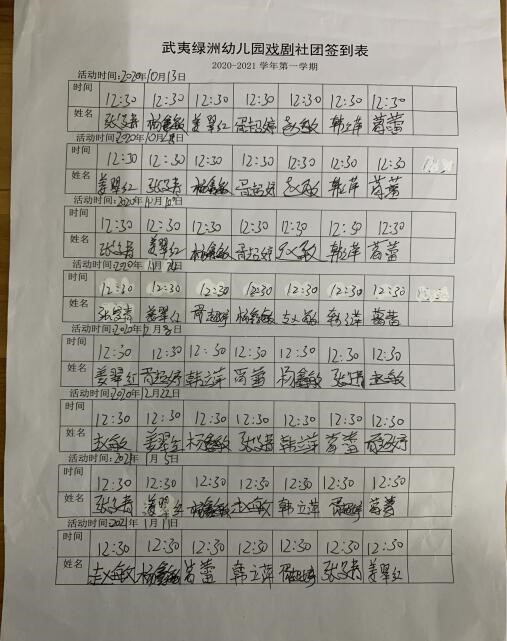 武夷绿洲幼儿园戏剧社团签到表
2020-2021 学年第一学期
活动时间:2020年10月13日
时间 12:30 12:30 12:30 12:30 12:30 12:30 12:30
姓名 杨鑫敏 姜翠红 赵敏 韩立萍 葛蕾
活动时间:2020年10月 日
时间 12:30 12:30 12:30 12:30 12:30 12:30 12:30
姓名 姜翠红 杨鑫敏 赵敏 韩立萍 葛蕾
活动时间:2020年 月 日
时间 12:30 12:30 12:30 12:30 12:30 12:30 12:30
姓名 姜翠红 杨鑫敏 赵敏 韩立萍 葛蕾
活动时间:2020年 月 日
时间 12:30 12:30 12:30 12:30 12:30 12:30 12:30
姓名 姜翠红 杨鑫敏 赵敏 韩立萍 葛蕾
活动时间:2020年12月 日
时间 12:30 12:30 12:30 12:30 12:30 12:30 12:30
姓名 姜翠红 韩立萍 葛蕾 杨鑫敏 赵敏
活动时间:2020年12月22日
时间 12:30 12:30 12:30 12:30 12:30 12:30 12:30
姓名 赵敏 姜翠红 杨鑫敏 韩立萍 葛蕾
活动时间:2021年1月5日
时间 12:30 12:30 12:30 12:30 12:30 12:30 12:30
姓名 姜翠红 杨鑫敏 赵敏 韩立萍 葛蕾
活动时间:2021年1月 日
时间 12:30 12:30 12:30 12:30 12:30 12:30 12:30
姓名 赵敏 杨鑫敏 葛蕾 韩立萍 姜翠红